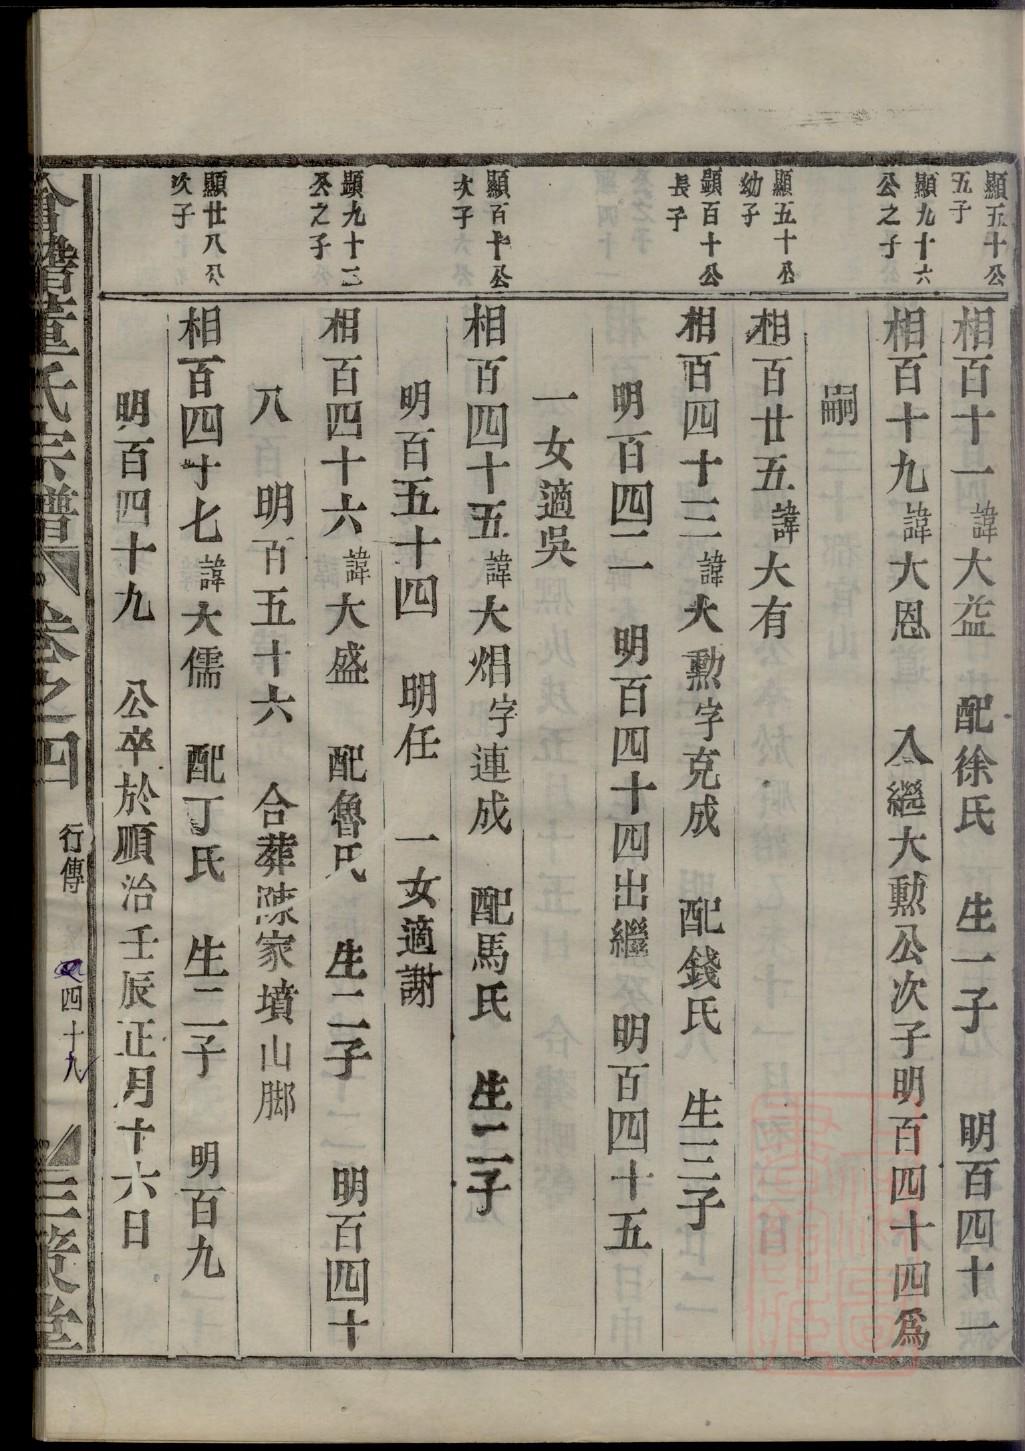 顯五十公
五子
相百十一諱大益 配徐氏 生一子 明百四十一
顯九十六
公之子
相百十九諱大恩 入繼大勲公次子明百四十四爲
嗣
顯五十公
幼子
相百廿五諱大有
顯百十公
長子
相百四十三諱大勲字克成 配錢氏 生三子
明百四二 明百四十四出繼 明百四十五
一女適吳
顯百十公
次子
相百四十五諱大焻字連成 配馬氏 生二子
明百五十四 明任 一女適謝
顯九十三
公之子
相百四十六諱大盛 配魯氏 生二子 明百四十
八 明百五十六 合葬陳家墳山脚
顯廿八公
次子
相百四十七諱大儒 配丁氏 生二子 明百九
明百四十九 公卒於順治壬辰正月十六日
會稽董氏宗譜 卷之四 行傳 四十九 三策堂